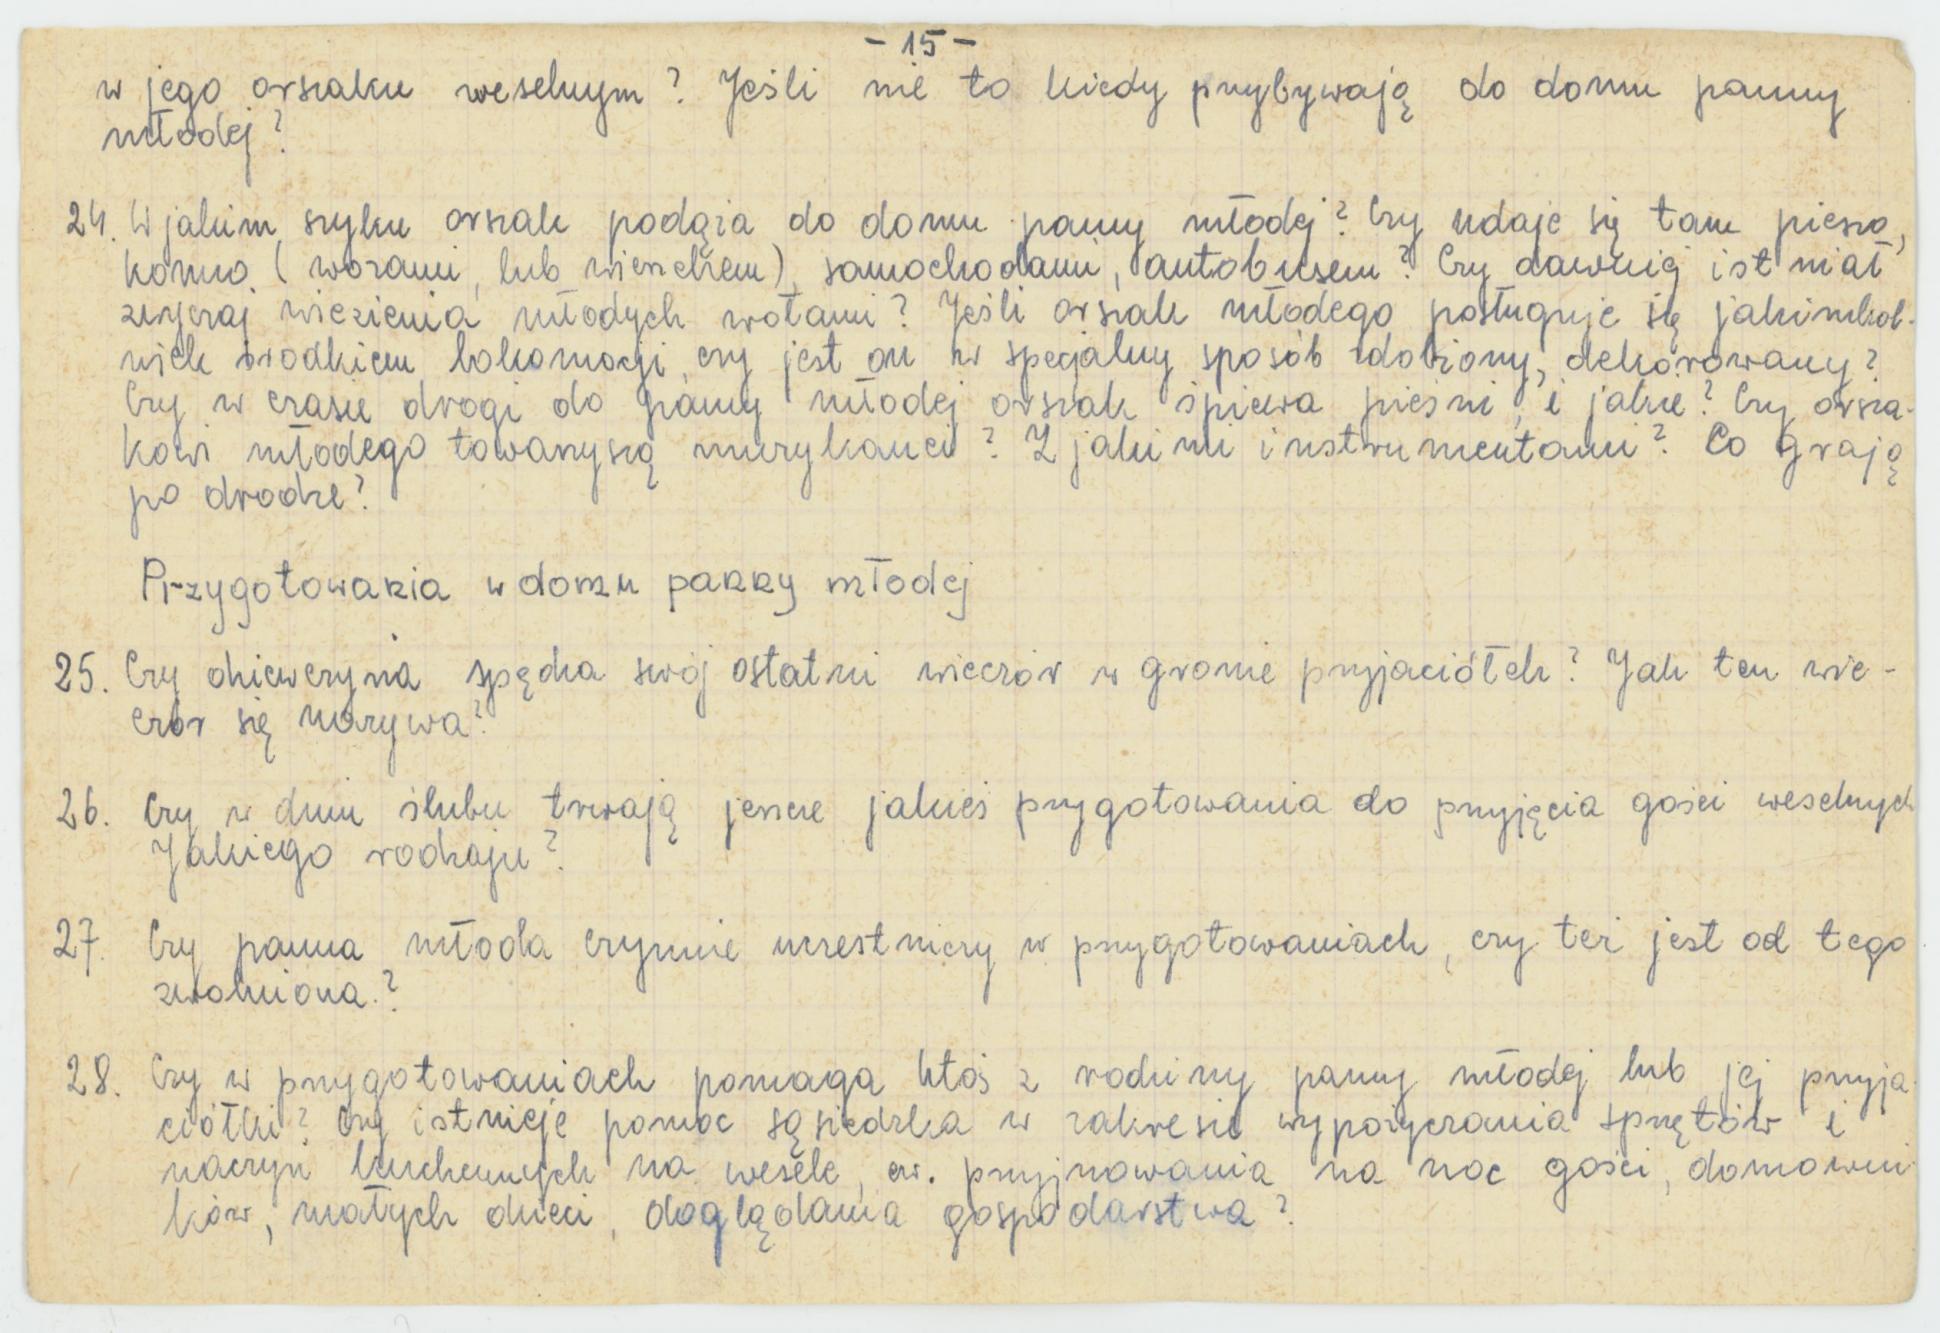 - 15 -
w jego orszaku weselnym? Jeśli nie to kiedy przybywają do domu panny
młodej?
24. W jakim szyku orszak podąża do domu panny młodej? Czy udaje się tam pieszo,
konno (wozami, lub wierzchem), samochodami, autobusem? Czy dawniej istniał
zwyczaj wiezienia młodych wołami? Jeśli orszak młodego posługuje się jakimkol-
wiek środkiem lokomocji, czy jest on w specjalny sposób zdobiony, dekorowany?
Czy w czasie drogi do panny młodej orszak śpiewa pieśni, i jakie? Czy orsza-
kowi młodego towarzyszą muzykanci? Z jakimi instrumentami? Co grają
po drodze?
Przygotowania w domu panny młodej
25. Czy dziewczyna spędza swój ostatni wieczór w gronie przyjaciółek? Jak ten wie-
czór się nazywa?
26. Czy w dniu ślubu trwają jeszcze jakieś przygotowania do przyjęcia gości weselnych
Jakiego rodzaju?
27. Czy panna młoda czynnie uczestniczy w przygotowaniach, czy też jest od tego
zwolniona.?
28. Czy w przygotowaniach pomaga ktoś z rodziny panny młodej lub jej przyja-
ciółki? Czy istnieje pomoc sąsiedzka w zakresie wypożyczania sprzętów i
naczyń kuchennych na wesele, ew. przyjmowania na noc gości, domowni-
ków, małych dzieci, doglądania gospodarstwa?